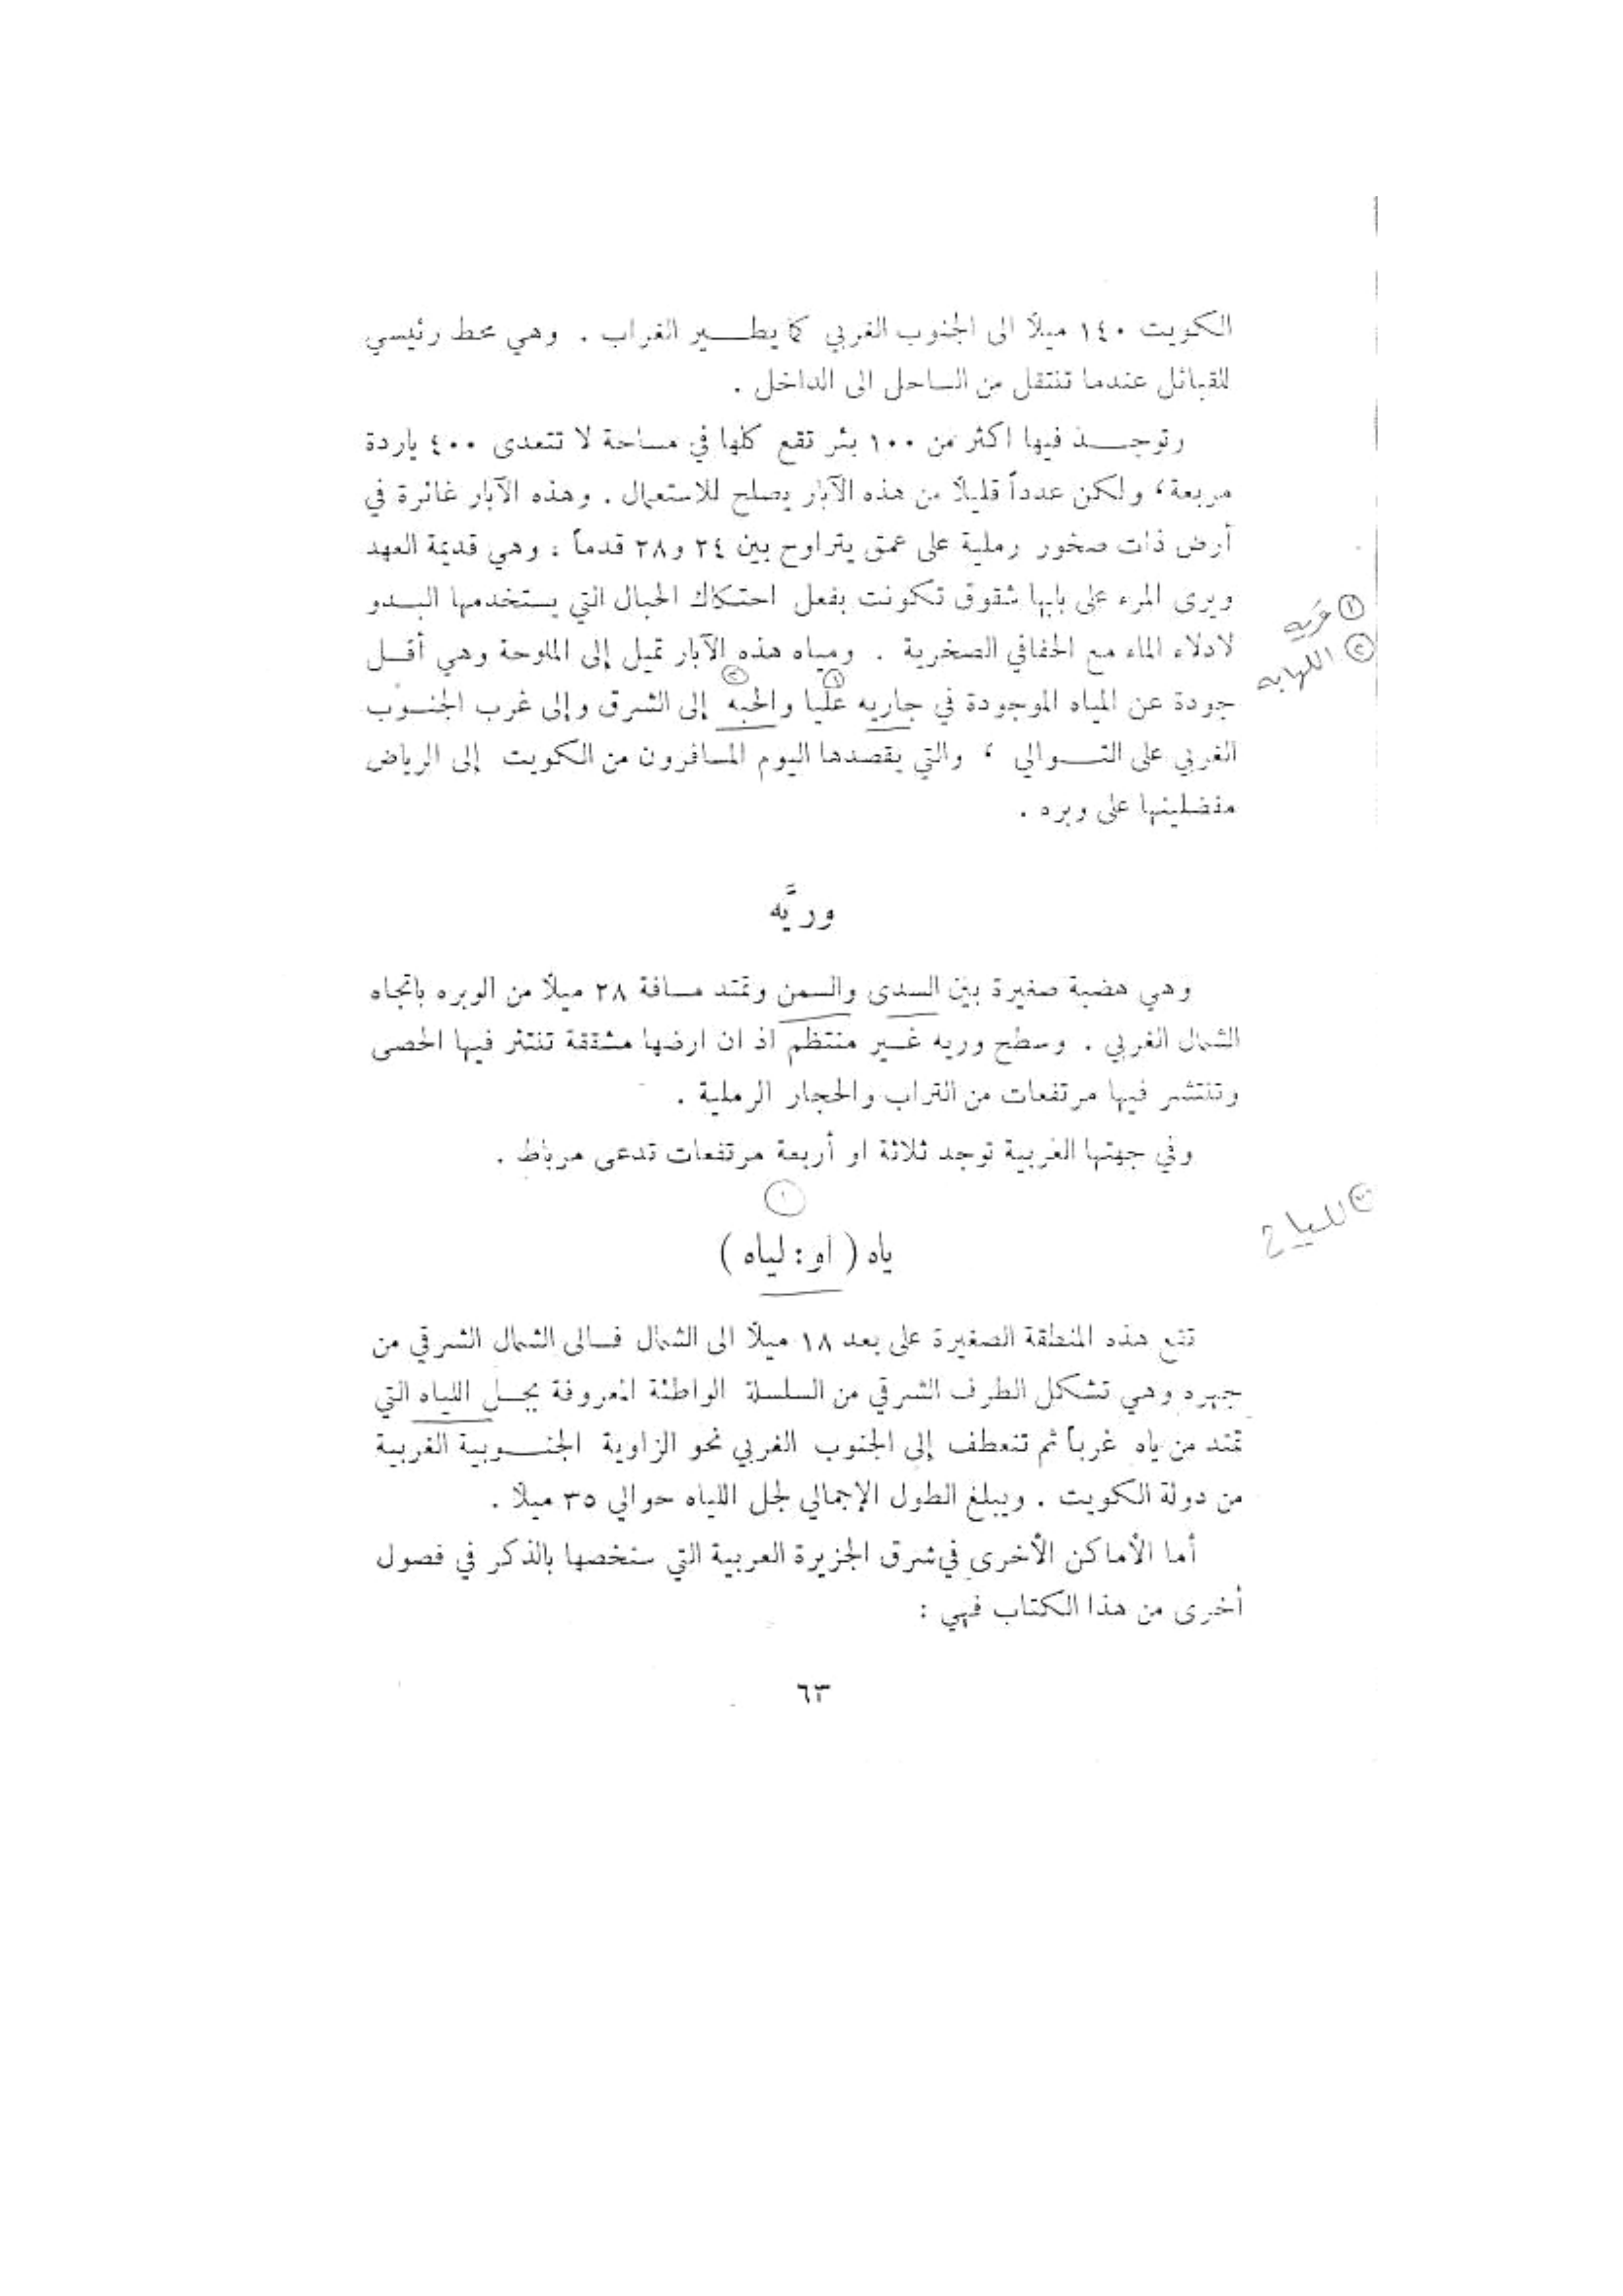 الكويت ١٤٠ ميلاً الى الجنوب الغربي كما يطـــير الغراب . وهي محط رئيسي
للقبائل عندما تنتقل من الساحل الى الداخل .
وتوجـــد فيها اكثر من ١٠٠ بئر تقع كلها في مساحة لا تتعدى ٤٠٠ ياردة
مربعة، ولكن عدداً قليلاً من هذه الآبار يصلح للاستعمال . وهذه الآبار غائرة في
أرض ذات صخور رملية على عمق يتراوح بين ٢٤ و٢٨ قدماً ، وهي قديمة العهد
ويرى المرء على بابها شقوق تكونت بفعل احتكاك الحبال التي يستخدمها البـدو
لادلاء الماء مع الحفافي الصخرية . ومياه هذه الآبار تميل إلى الملوحة وهي أقـل
① عَريه
② اللهابه
جودة عن المياه الموجودة في جاريه عُليا والحبه إلى الشرق وإلى غرب الجنـوب
الغربي على التـــوالي ، والتي يقصدها اليوم المسافرون من الكويت إلى الرياض
مفضلينها على وبره .
وريَّه
وهي هضبة صغيرة بين السدى والسمن وتمتد مسافة ٢٨ ميلاً من الوبره باتجاه
الشمال الغربي . وسطح وريه غـير منتظم اذ ان ارضها مشققة تنتثر فيها الحصى
وتنتشر فيها مرتفعات من التراب والحجار الرملية .
وفي جهتها الغربية توجد ثلاثة او أربعة مرتفعات تدعى مرباط .
للياح
ياه ( او : لياه )
تقع هذه المنطقة الصغيرة على بعد ١٨ ميلاً الى الشمال فـالى الشمال الشرقي من
جهره وهي تشكل الطرف الشرقي من السلسلة الواطئة المعروفة بجـل اللياه التي
تمتد من ياه غرباً ثم تنعطف إلى الجنوب الغربي نحو الزاوية الجنـــوبية الغربية
من دولة الكويت . ويبلغ الطول الإجمالي لجل اللياه حوالي ٣٥ ميلاً .
أما الأماكن الأخرى في شرق الجزيرة العربية التي سنخصها بالذكر في فصول
أخرى من هذا الكتاب فهي :
٦٣